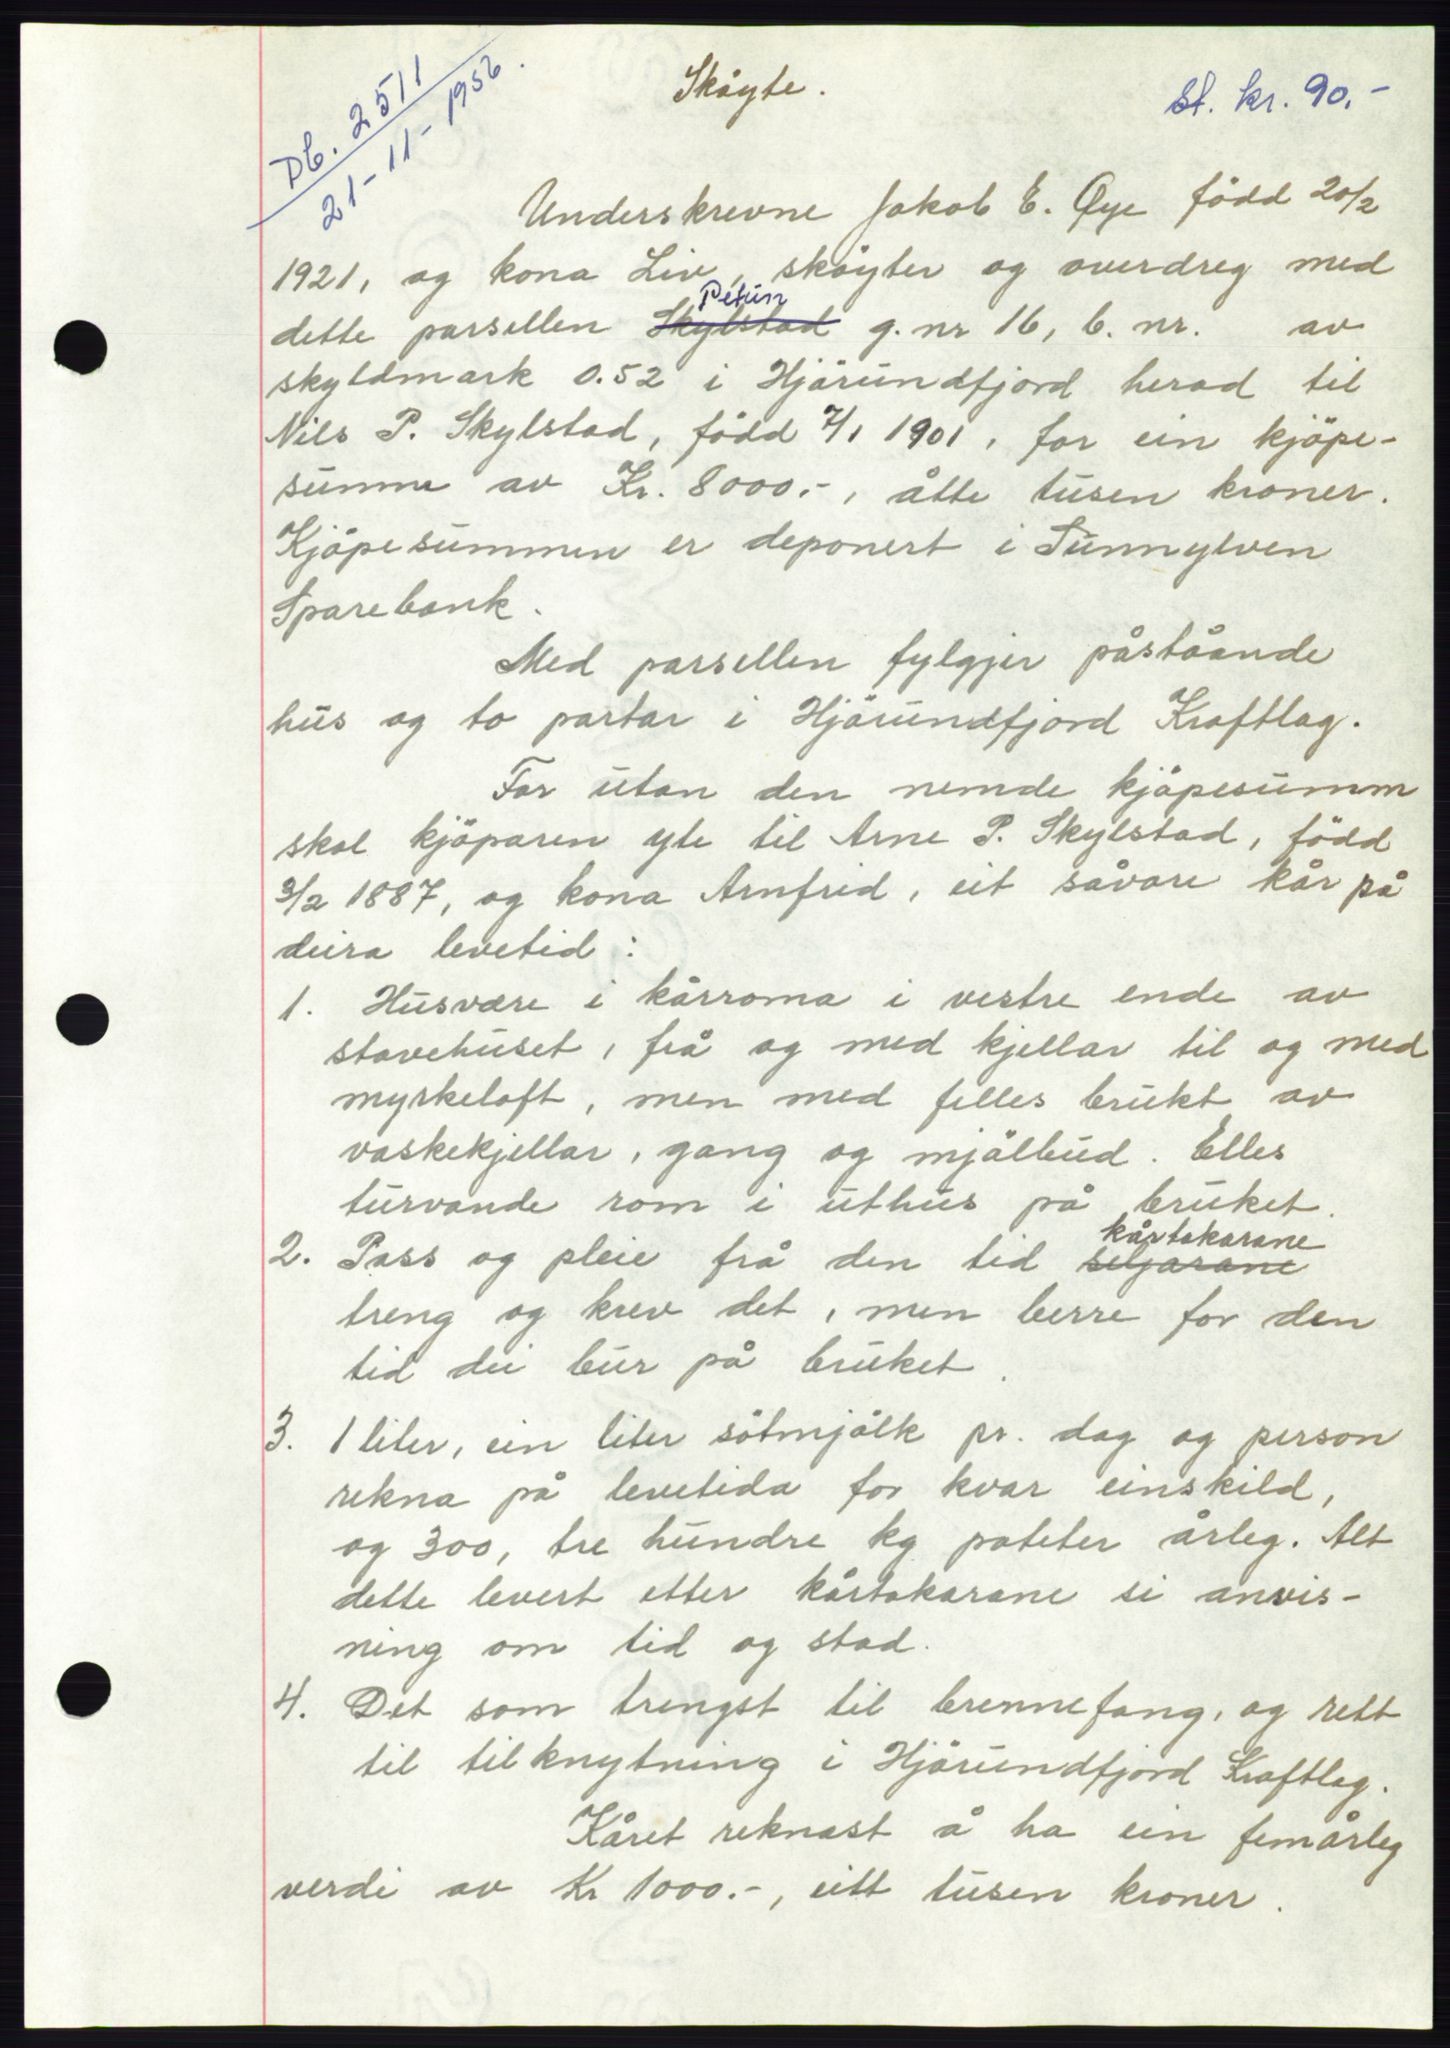 Db. 2511
21-11-1956.
Sköyte.
St. kr. 90.-
Underskrevne Jakob E. Øye född 20/2
1921, og kona Liv, sköyter og overdreg med
Petun
dette parsellen Skylstad g. nr 16, b. nr. av
skyldmark 0.52 i Hjörundfjord herad til
Nils P. Skylstad, född 7/1 1901, for ein kjöpe-
summe av Kr. 8000.-, åtte tusen kroner.
Kjöpesummen er deponert i Sunnylven
Sparebank.
Med parsellen fylgjer påståande
hus og to partar i Hjörundfjord Kraftlag.
For utan den nemde kjöpesumm
skal kjöparen yte til Arne P. Skylstad, född
3/2 1887, og kona Arnfrid, eit såvore kår på
deira levetid:
1. Husvære i kårroma i vestre ende av
stovehuset, frå og med kjellar til og med
myrkeloft, men med felles brukt av
vaskekjellar, gang og mjölbud. Elles
turvande rom i uthus på bruket.
kårtakarane
2. Pass og pleie frå den tid seljarane
treng og krev det, men berre for den
tid dei bur på bruket.
3. 1 liter, ein liter sötmjölk pr. dag og person
rekna på levetida for kvar einskild,
og 300, tre hundre kg poteter årleg. Alt
dette levert etter kårtakarane si anvis-
ning om tid og stad.
4. Det som trengst til brennefang, og rett
til tilknytning i Hjörundfjord Kraftlag.
Kåret reknast å ha ein femårleg
verdi av Kr 1000.-, eitt tusen kroner.